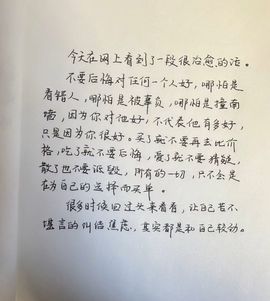 今天在网上看到了一段很治愈的话。
不要后悔对任何一个人好,哪怕是
看错人,哪怕是被辜负,哪怕是撞南
墙,因为你对他好,不代表他有多好,
只是因为你很好。买了就不要再去比价
格,吃了就不要后悔,爱了就不要猜疑,
散了也不要诋毁,所有的一切,只不过是
在为自己的选择而买单。
很多时候回过头来看看,让自己苦不
堪言的纠结焦虑,其实都是和自己较劲。